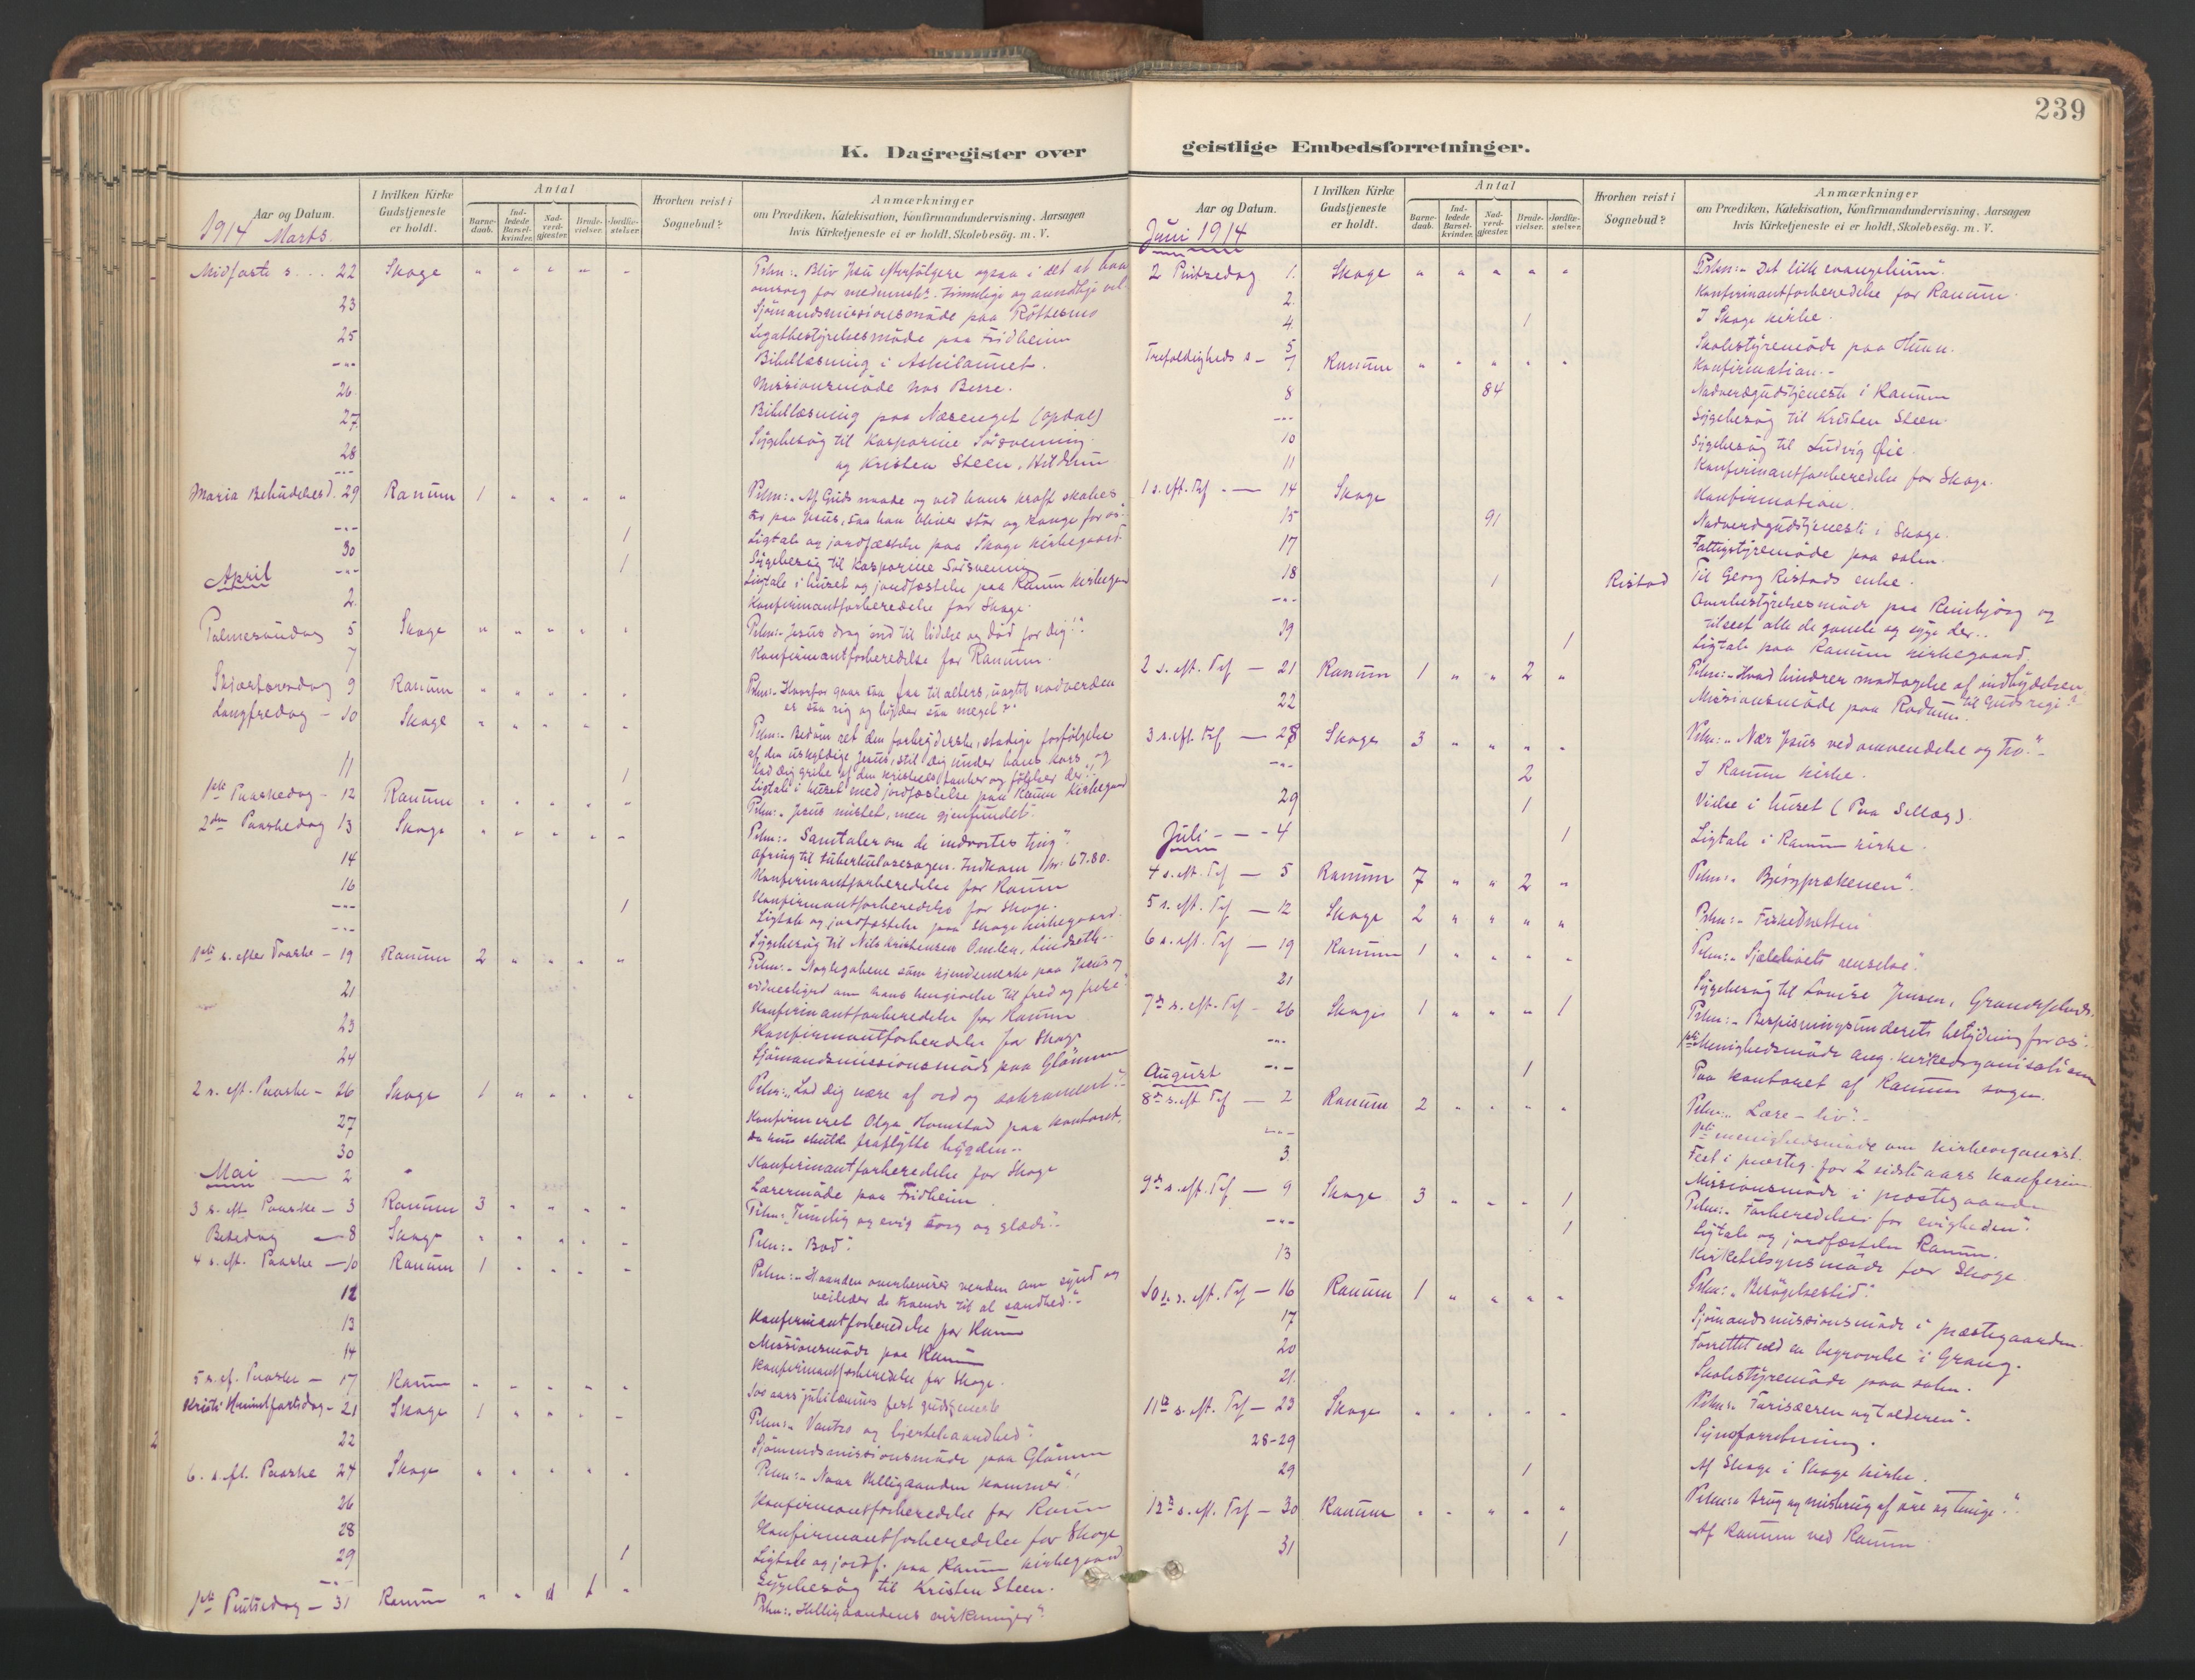 239
K. Dagregister over
geistlige Embedsforretninger.
Aar og Datum.
I hvilken Kirke Gudstjeneste er holdt.
Antal
Barne-daab.
Ind-ledede Barsel-kvinder.
Nad-verd-gjæster.
Brude-vielser.
Jordfæ-stelser.
Hvorhen reist i Sognebud?
Anmærkninger
om Prædiken, Katekisation, Konfirmandundervisning. Aarsagen
hvis Kirketjeneste ei er holdt. Skolebesög. m. V.
1914 Marts.
Midfaste s. .. 22 Skage " " " " "
23 Sjömandsmissionsmöde paa Röttesmo
25 Legatbestyrelsesmöde paa Fridheim
-"- Bibellæsning i
26 Missionsmöde hos
27 Bibellæsning paa Næsenget (Opdal)
28 Sygebesög til Kasparine
og Kristen Steen, Hildrum
-"-
Maria Bebudelsesd. 29 Ranum 1 " " " " Prkn: "Af Guds naade og ved hans kraft skabes
tro paa Jesus, saa han bliver stor og konge for os."
-"- 1 Ligtale og jordfæstelse paa Skage kirkegaard
30 Sygebesög til Kasparine
April -"- 1 Ligtale i huset og jordfæstelse paa Ranum kirkegaard
2 Konfirmantforberedelse for Skage.
Palmesöndag 5 Skage " " " " " Prkn: "Jesus drog ind til lidelse og död for dig!"
7 Konfirmantforberedelse for Ranum.
Skjærtorsdag 9 Ranum " " " " " Prkn: "Hvorfor gaar saa faa til alters, uagtet nadverden
er saa rig og byder saa meget?"
Langfredag - 10 Skage " " " " "
11 1 Ligtale i huset med jordfæstelse paa Ranum kirkegaard
1ste Paaskedag - 12 Ranum " " " " " Prkn: "Jesus mistet, men gjenfundet."
2den Paaskedag 13 Skage " " " " " Prkn: "Samtaler om de indvortes ting".
Ofring til tuberkulosesagen. Indkom kr: 67.80.
14 Konfirmantforberedelse for Ranum
16 Konfirmantforberedelse for Skage.
-"- 1 Ligtale og jordfæstelse paa Skage kirkegaard.
-"- Sygebesög til Nils Kristensen
1ste s. efter Paaske - 19 Ranum 2 " " " "
21 Konfirmantforberedelse for Ranum
23 Konfirmantforberedelse for Skage
24 Sjömandsmissionsmöde paa Glömmen
2 s. eft. Paaske - 26 Skage 1 " " " " Prkn: "Lad dig nære af ord og sakrament".
27 Konfirmeret Olga Homstad paa kontoret,
da hun skulde fraflytte bygden..
30 Konfirmantforberedelse for Skage
Mai - 2 Lærermöde paa Fridheim.
3 s. eft. Paaske - 3 Ranum 3 " " " " Prkn: "Timelig og evig sorg og glæde".
Bededag - 8 Skage " " " " " Prkn: "Bod".
4 s. eft. Paaske - 10 Ranum 1 " " " " Prkn: "Aanden overbeviser verden om synd og
veileder de troende til al sandhed."
12 Konfirmantforberedelse for Ranum
13 Missionsmöde paa Ranum
14 Konfirmantforberedelse for Skage.
5 s. ef. Paaske - 17 Ranum " " " " " 100 aars jubilæums fest gudstjeneste
Kristi Himmelfartsdag - 21 Skage 1 " " " " Prkn: "Vantro og hjertehaardhed".
22 Sjömandsmissionsmöde paa Glömmen
6. s. eft. Paaske 24 Skage " " " " " Prkn: "Naar Helligaanden kommer"!
26 Konfirmantforberedelse for Ranum
28 Konfirmantforberedelse for Skage
29 1 Ligtale og jordf. paa Ranum kirkegaard
-"- Sygebesög til Kristen Steen.
1ste Pintsedag - 31 Ranum " " " 1 " Prkn: "Helligaandens virkninger".
Aar og Datum.
I hvilken Kirke Gudstjeneste er holdt.
Antal
Barne-daab.
Ind-ledede Barsel-kvinder.
Nad-verd-gjæster.
Brude-vielser.
Jordfæ-stelser.
Hvorhen reist i Sognebud?
Anmærkninger
om Prædiken, Katekisation, Konfirmandundervisning. Aarsagen
hvis Kirketjeneste ei er holdt. Skolebesög. m. V.
Juni 1914
2 Pintsedag 1. Skage " " " " " Prkn: "Det lille evangelium".
2. Konfirmantforberedelse for Ranum.
4. 1 I Skage kirke.
5 Skolestyremöde paa Hunn.
Trefoldigheds s - 7 Ranum " " " " " Konfirmation.-
8 84 Nadverdgudstjeneste i Ranum
-"- Sygebesög til Kristen Steen.
10 Sygebesög til Ludvig Öie.
11 Konfirmantforberedelse for Skage.
1 s. eft. Trf. - 14 Skage Konfirmation.
15 91 Nadverdgudstjeneste i Skage.
17 Fattigstyremöde paa salen.
18 1 Ristad Til Georg Ristads enke.
-"- Ombestyrelsesmöde paa Reinbjörg og
tilseet alle de gamle og syge der..
19 1 Ligtale paa Ranum kirkegaard.
2 s. eft. Trf - 21 Ranum 1 " " 2 " Prkn: "Hvad hindrer modtagelse af indbydelsen
til Guds rige?"
22 Missionsmöde paa Rodum.
3 s. eft. Trf - 28 Skage 3 " " " " Prkn: "Nær Jesus ved omvendelse og tro."-
-"- 2 I Ranum kirke.
29 1 Vielse i huset (Paa Sellæg).
Juli - - - 4 1 Ligtale i Ranum kirke.
4 s. eft. Trf - 5 Ranum 7 " " 2 " Prkn: "Bjergprækenen".
5 s. eft. Trf - 12 Skage 2 " " " " Prkn: "Fiskedrætten"
6 s. eft. Trf - 19 Ranum 1 " " " " Prkn: "Sjælelivets renselse".
21 Sygebesög til Lovise Jensen,
7de s. eft. Trf - 26 Skage 1 " " " 1 Prkn: "Bespisningsunderets betydning for os".
-"- 1ste Menighedsmöde ang. kirkeorganisation
August -"- 1 Paa kontoret af Ranum sogn.
8de s. eft Trf - 2 Ranum 2 " " " " Prkn: "Lære - liv".-
-"- 1ste menighedsmöde om kirkeorganist.
3 Fest i præsteg. for 2 sidste aars konfirm.
Missionsmöde i præstegaarden
9de s. eft. Trf - 9 Skage 3 " " " 1 Prkn: "Forberedelse for evigheden".
-"- 1 Ligtale og jordfæstelse Ranum.
13 Kirketilsynsmöde for Skage
10de s. eft. Trf - 16 Ranum 1 " " " " Prkn: "Besögelsestid".
17 Sjömandsmissionsmöde i præstegaarden.
20 Forrettet ved en begravelse i Grong.
21. Skolestyremöde paa salen.
11te s. eft. Trf - 23 Skage " " " " " Prkn: "Farisæeren og tolderen".
28-29 Synsforretning.
29 1 Af Skage i Skage kirke.
12te s. eft. Trf - 30 Ranum " " " " " Prkn: "Brug og misbrug af öre og tunge".
31 1 Af Ranum ved Ranum